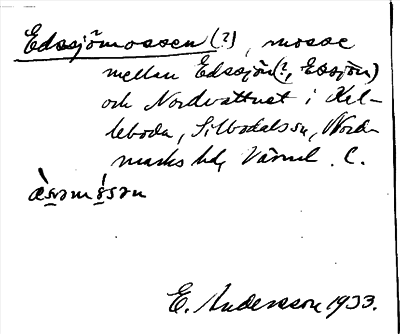 Edssjömossen (?), mosse
mellan Edssjön (?, Essjön)
och Nordvattnet i Kal-
leboda, Silbodalssn, Nord-
marks hd, Värml. C.
E. Andersson 1933.